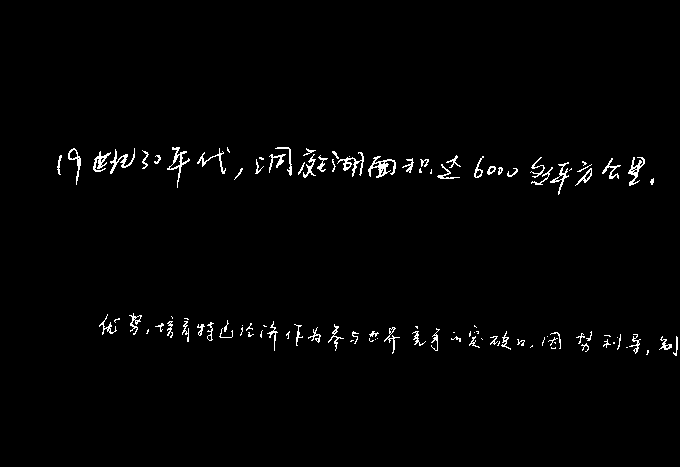 19世纪30年代，洞庭湖面积达6000多平方公里。
优势，培育特色经济作为参与世界竞争的突破口，因势利导，制